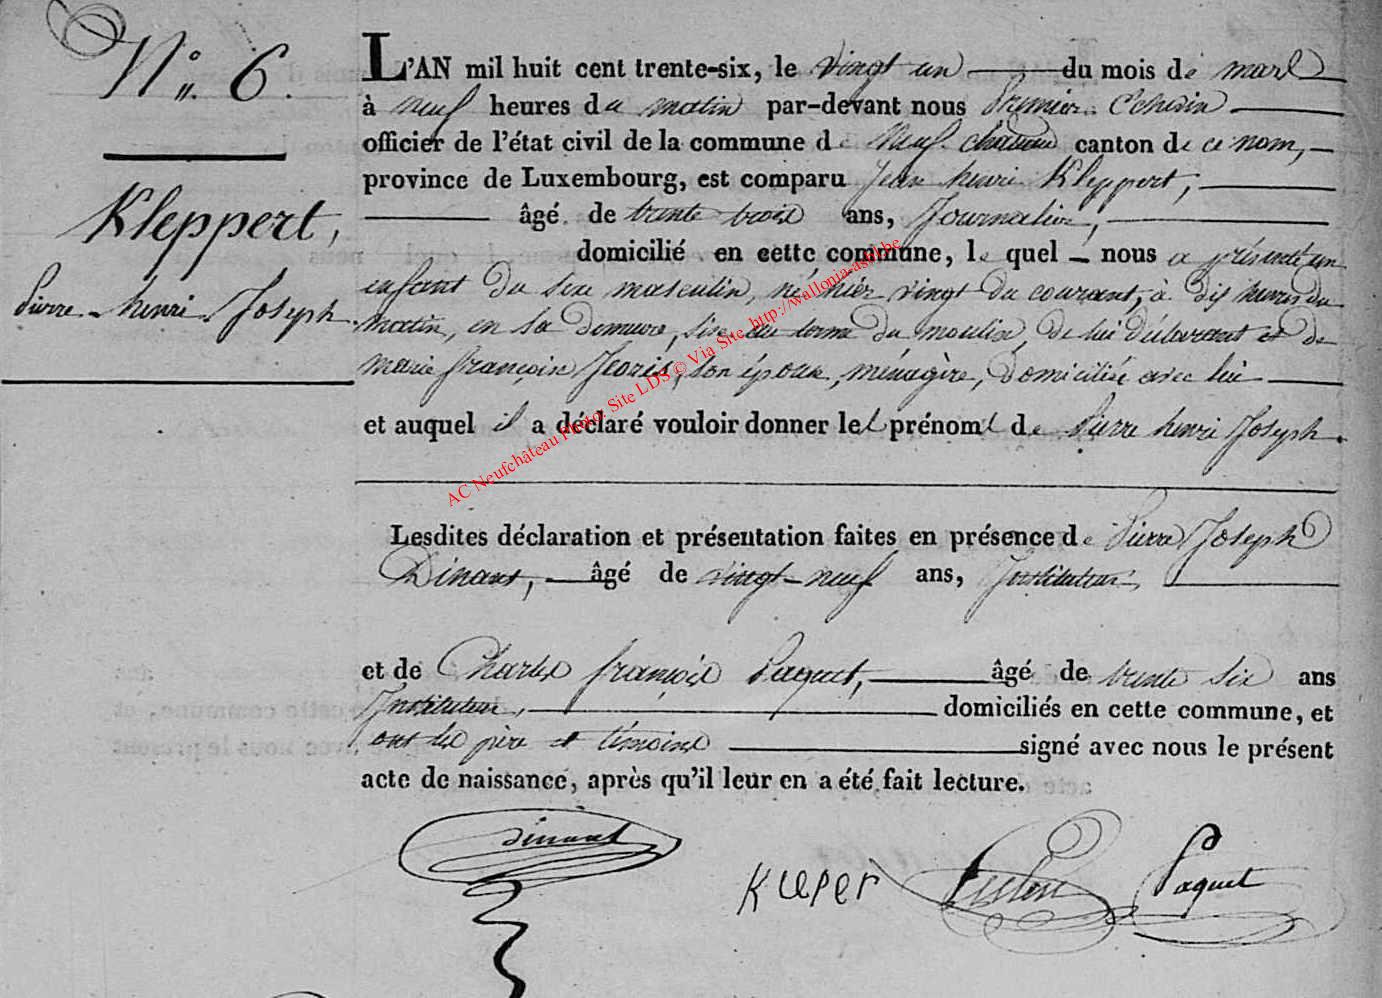 N° 6.
Kleppert,
Pierre henri Joseph.
L'AN mil huit cent trente-six, le vingt un du mois de mars
à neuf heures du matin par-devant nous Premier Echevin
officier de l'état civil de la commune de Neufchateau canton de ce nom,
province de Luxembourg, est comparu Jean henri Kleppert,
âgé de trente trois ans, Journalier,
domicilié en cette commune, le quel nous a présenté un
enfant du sexe masculin, né hier vingt du courant, à dix heures du
matin, en sa demeure, sise du moulin, de lui déclarant et de
marie françoise Jeoris, son épouse, ménagère, domiciliée avec lui
et auquel il a déclaré vouloir donner les prénoms de Pierre henri Joseph.
Lesdites déclaration et présentation faites en présence de Pierre Joseph
Dinant, âgé de vingt-neuf ans, Instituteur,
et de Charles françois Paquet, âgé de trente six ans
Instituteur, domiciliés en cette commune, et
ont les père et témoins signé avec nous le présent
acte de naissance, après qu'il leur en a été fait lecture.
dinant
Kleper
Paquet
AC Neufchâteau Photo: Site LDS © Via Site http://wallonia-asbl.be